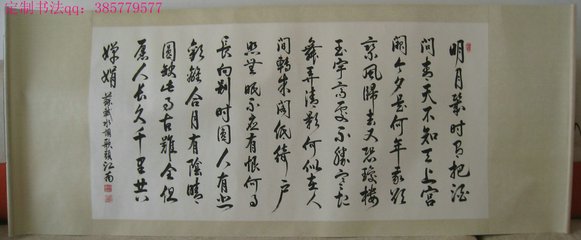 定制书法qq：385779577
明月几时有把酒
问青天不知天上宫
阙今夕是何年我欲
乘风归去又恐琼楼
玉宇高处不胜寒起
舞弄清影何似在人
间转朱阁低绮户
照无眠不应有恨何事
长向别时圆人有悲
欢离合月有阴晴
圆缺此事古难全但
愿人长久千里共
婵娟 苏轼水调歌头江南